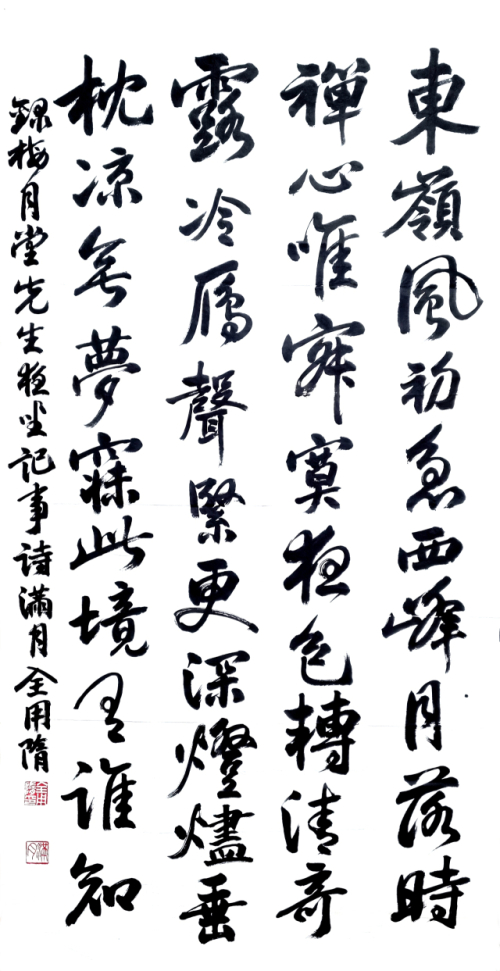 東嶺風初急西峰月落時
禪心唯寂寞夜色轉清奇
露冷鴈聲緊更深燈燼垂
枕凉無夢寐此境有誰知
錄梅月堂先生夜坐記事詩滿月全用隋